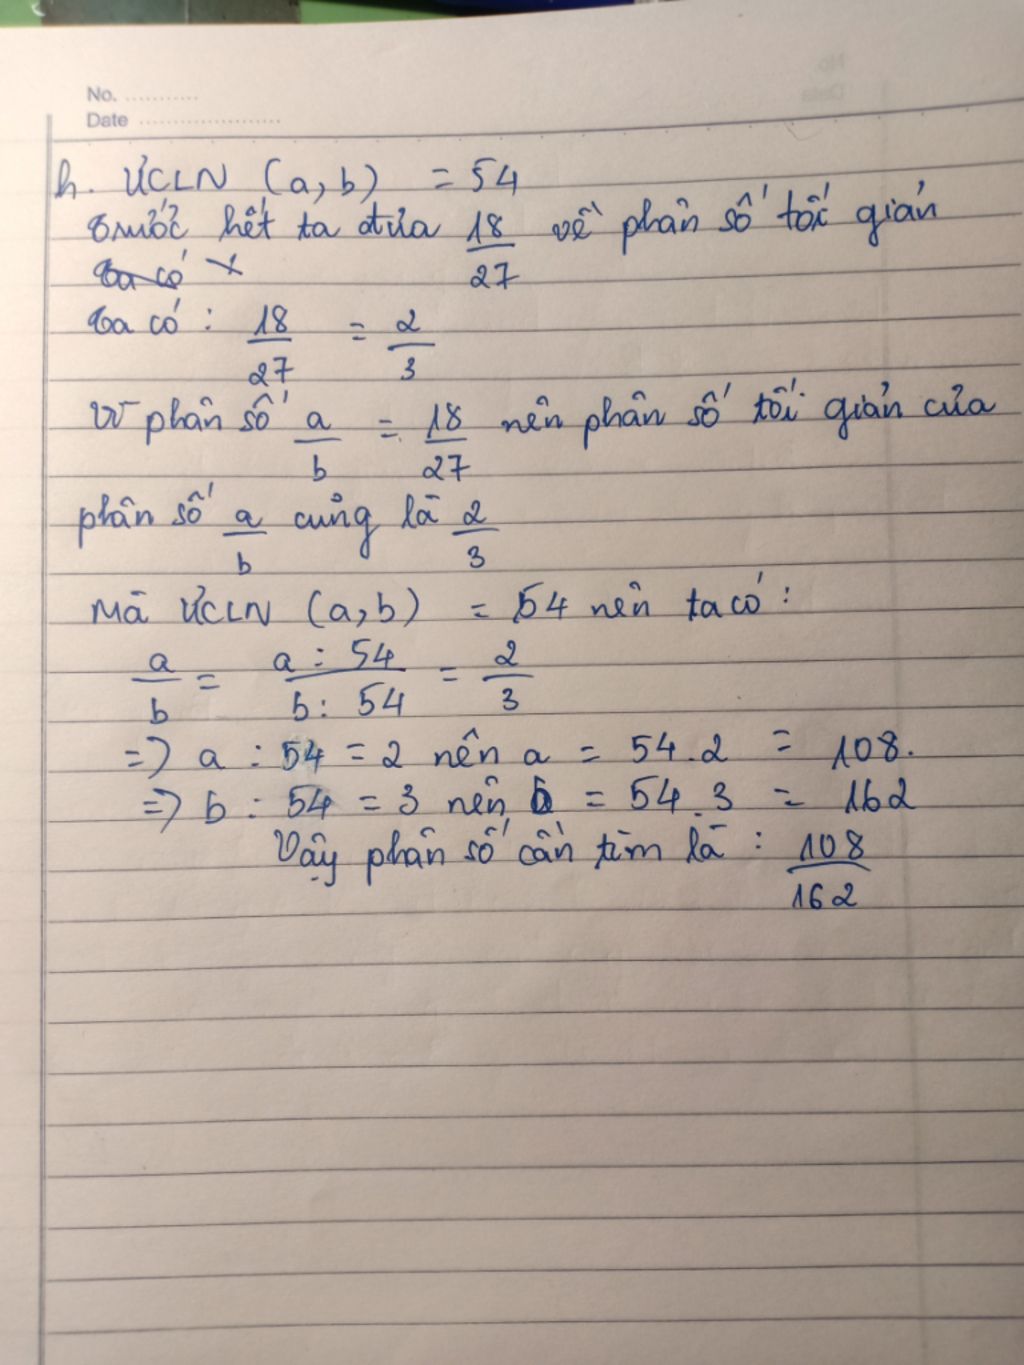 No. ...........
Date ......................
h. ƯCLN (a, b) = 54
Trước hết ta đưa 18/27 về phân số tối giản
Ta có
Ta có : 18/27 = 2/3
Vì phân số a/b = 18/27 nên phân số tối giản của
phân số a/b cũng là 2/3
Mà ƯCLN (a, b) = 54 nên ta có :
a/b = a : 54/b : 54 = 2/3
=> a : 54 = 2 nên a = 54.2 = 108.
=> b : 54 = 3 nên b = 54.3 = 162
Vậy phân số cần tìm là : 108/162